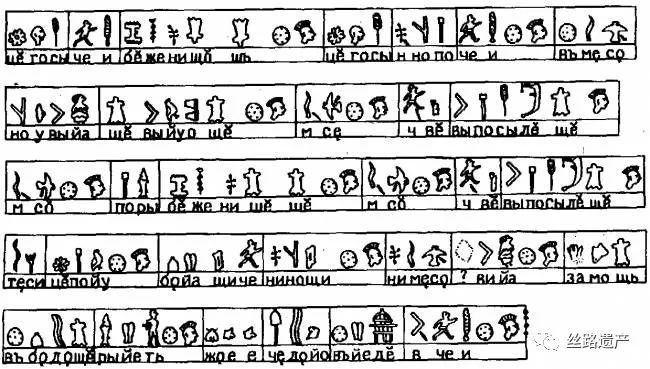 цӗгосы че и бӗженищӗ шь цӗгосы н но по че и въмȩсǫ
ноувыйа щӗвыйуощӗ м сȩ ч вӗ выпосылӗ щӗ
м сǫ поры бӗженишӗ щӗ м сǫ ч вӗ выпосылӗ щӗ
тȩси цӗпойу бойа щиче нинощи нимȩсǫ ? вийа замощь
въбǫдощӗ рыйеть е чȩдойо въйȩдӗ в че и
丝路遗产